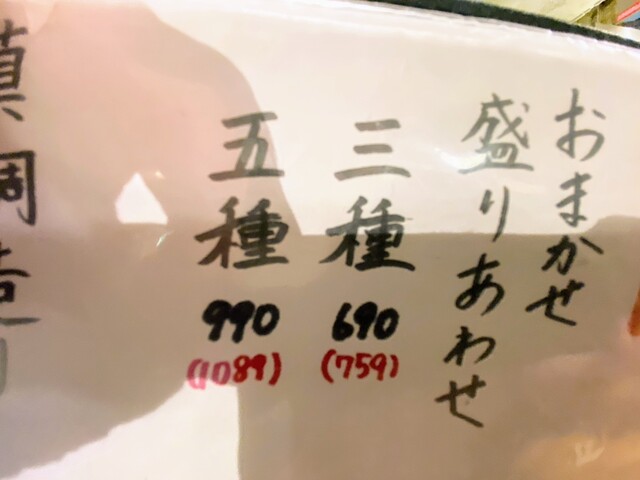 おまかせ
盛りあわせ
三種
690
(759)
五種
990
(1089)